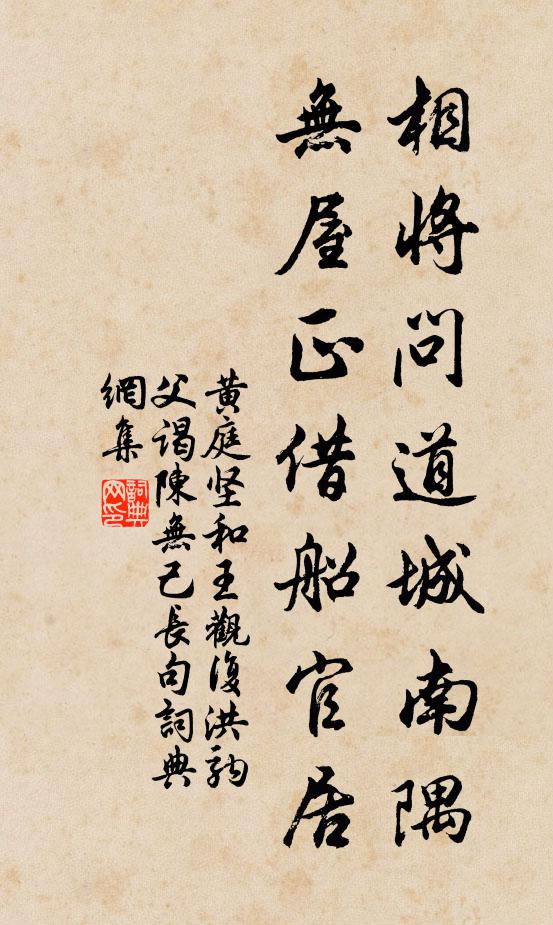 相將問道城南隅
無屋正借船官居
黄庭坚和王觀復洪駒
父谒陳無己長句詞典
網集
詞典網印